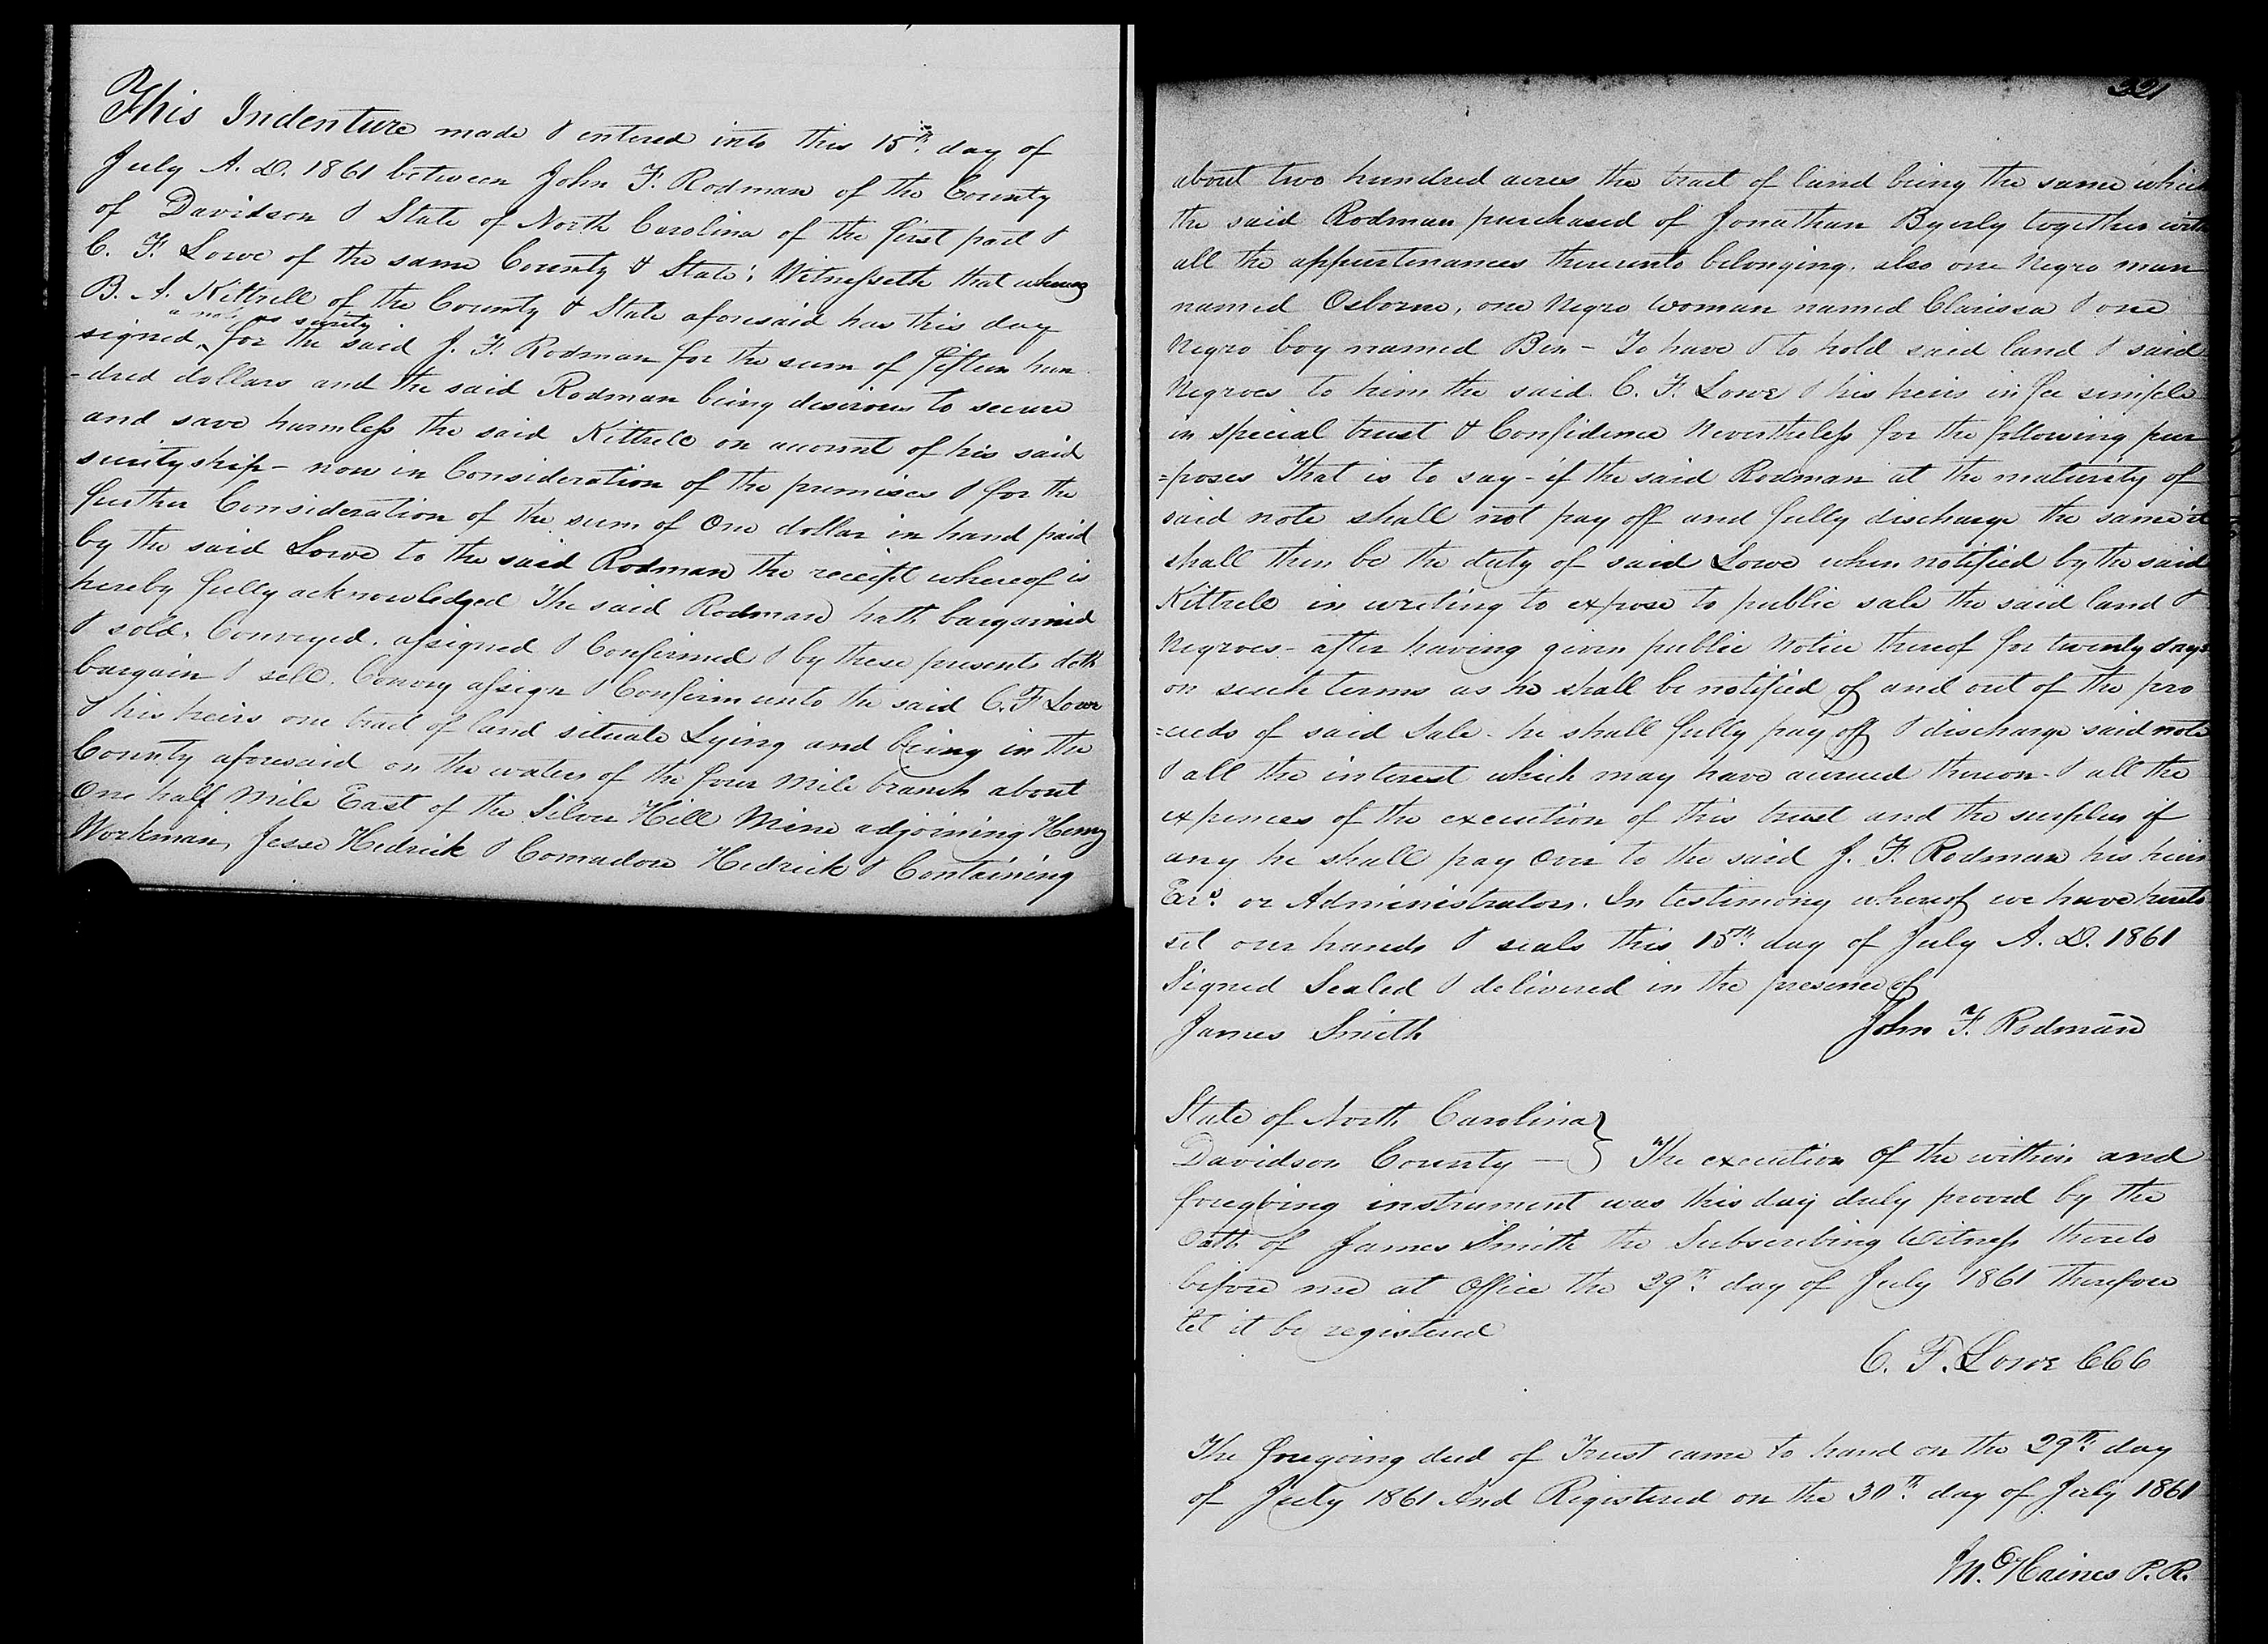 This Indenture made & entered into this 15th. day of
July A. D. 1861 between John F. Rodman of the County
of Davidson & State of North Carolina of the first part &
C. F. Lowe of the same County & State; Witnesseth that whereas
B. A. Kittrell of the County & State aforesaid has this day
a note as surity
signed ^ for the said J. F. Rodman for the sum of fifteen hun
-dred dollars and the said Rodman being desirous to secure
and save harmless the said Kittrell on account of his said
surityship - now in Consideration of the premises & for the
further Consideration of the sum of One dollar in hand paid
by the said Lowe to the said Rodman the receipt whereof is
hereby fully acknowledged The said Rodman hath bargained
& sold, Conveyed, assigned & Confirmed & by these presents doth
bargain & sell, Convey assign & Confirm unto the said C. F Lowe
& his heirs one tract of land situate Lying and being in the
County aforesaid on the waters of the four mile branch about
One half Mile East of the Silver Hill Mine adjoining Henry
Workman, Jesse Hedrick & Comadore Hedrick & Containing
321
about two hundred acres the tract of land being the same which
the said Rodman purchased of Jonathan Byerly together with
all the appurtinances thereunto belonging, also one Negro man
named Osborne, one Negro woman named Clarissa & one
Negro boy named Ben - To have & to hold said land & said
Negroes to him the said C. F. Lowe & his heirs in fee simple
in special trust & Confidence Nevertheless for the following pur
=poses That is to say - if the said Rodman at the maturity of
said note shall not pay off and fully discharge the same it
shall then be the duty of said Lowe when notified by the said
Kittrell in writing to expose to public sale the said land &
Negroes - after having given public Notice thereof for twenty days
on such terms as he shall be notified of and out of the pro
=ceeds of said Sale - he shall fully pay off & discharge said note
& all the interest which may have accrued thereon - & all the
expences of the execution of this trust and the surplus if
any he shall pay Over to the said J. F. Rodman his heirs
Exrs. or Administrators. In testimony whereof we have hereto
set our hands & seals this 15th. day of July A. D. 1861
Signed Sealed & delivered in the presence of
James Smith John F. Rodman
State of North Carolina }
Davidson County — } The execution of the within and
foregoing instrument was this day duly proved by the
Oath of James Smith the Subscribing Witness thereto
before me at Office the 29th. day of July 1861 therefore
let it be registered
C. F. Lowe CCC
The foregoing deed of Trust came to hand on the 29th. day
of July 1861 And Registered on the 30th. day of July 1861
Haines P. R.